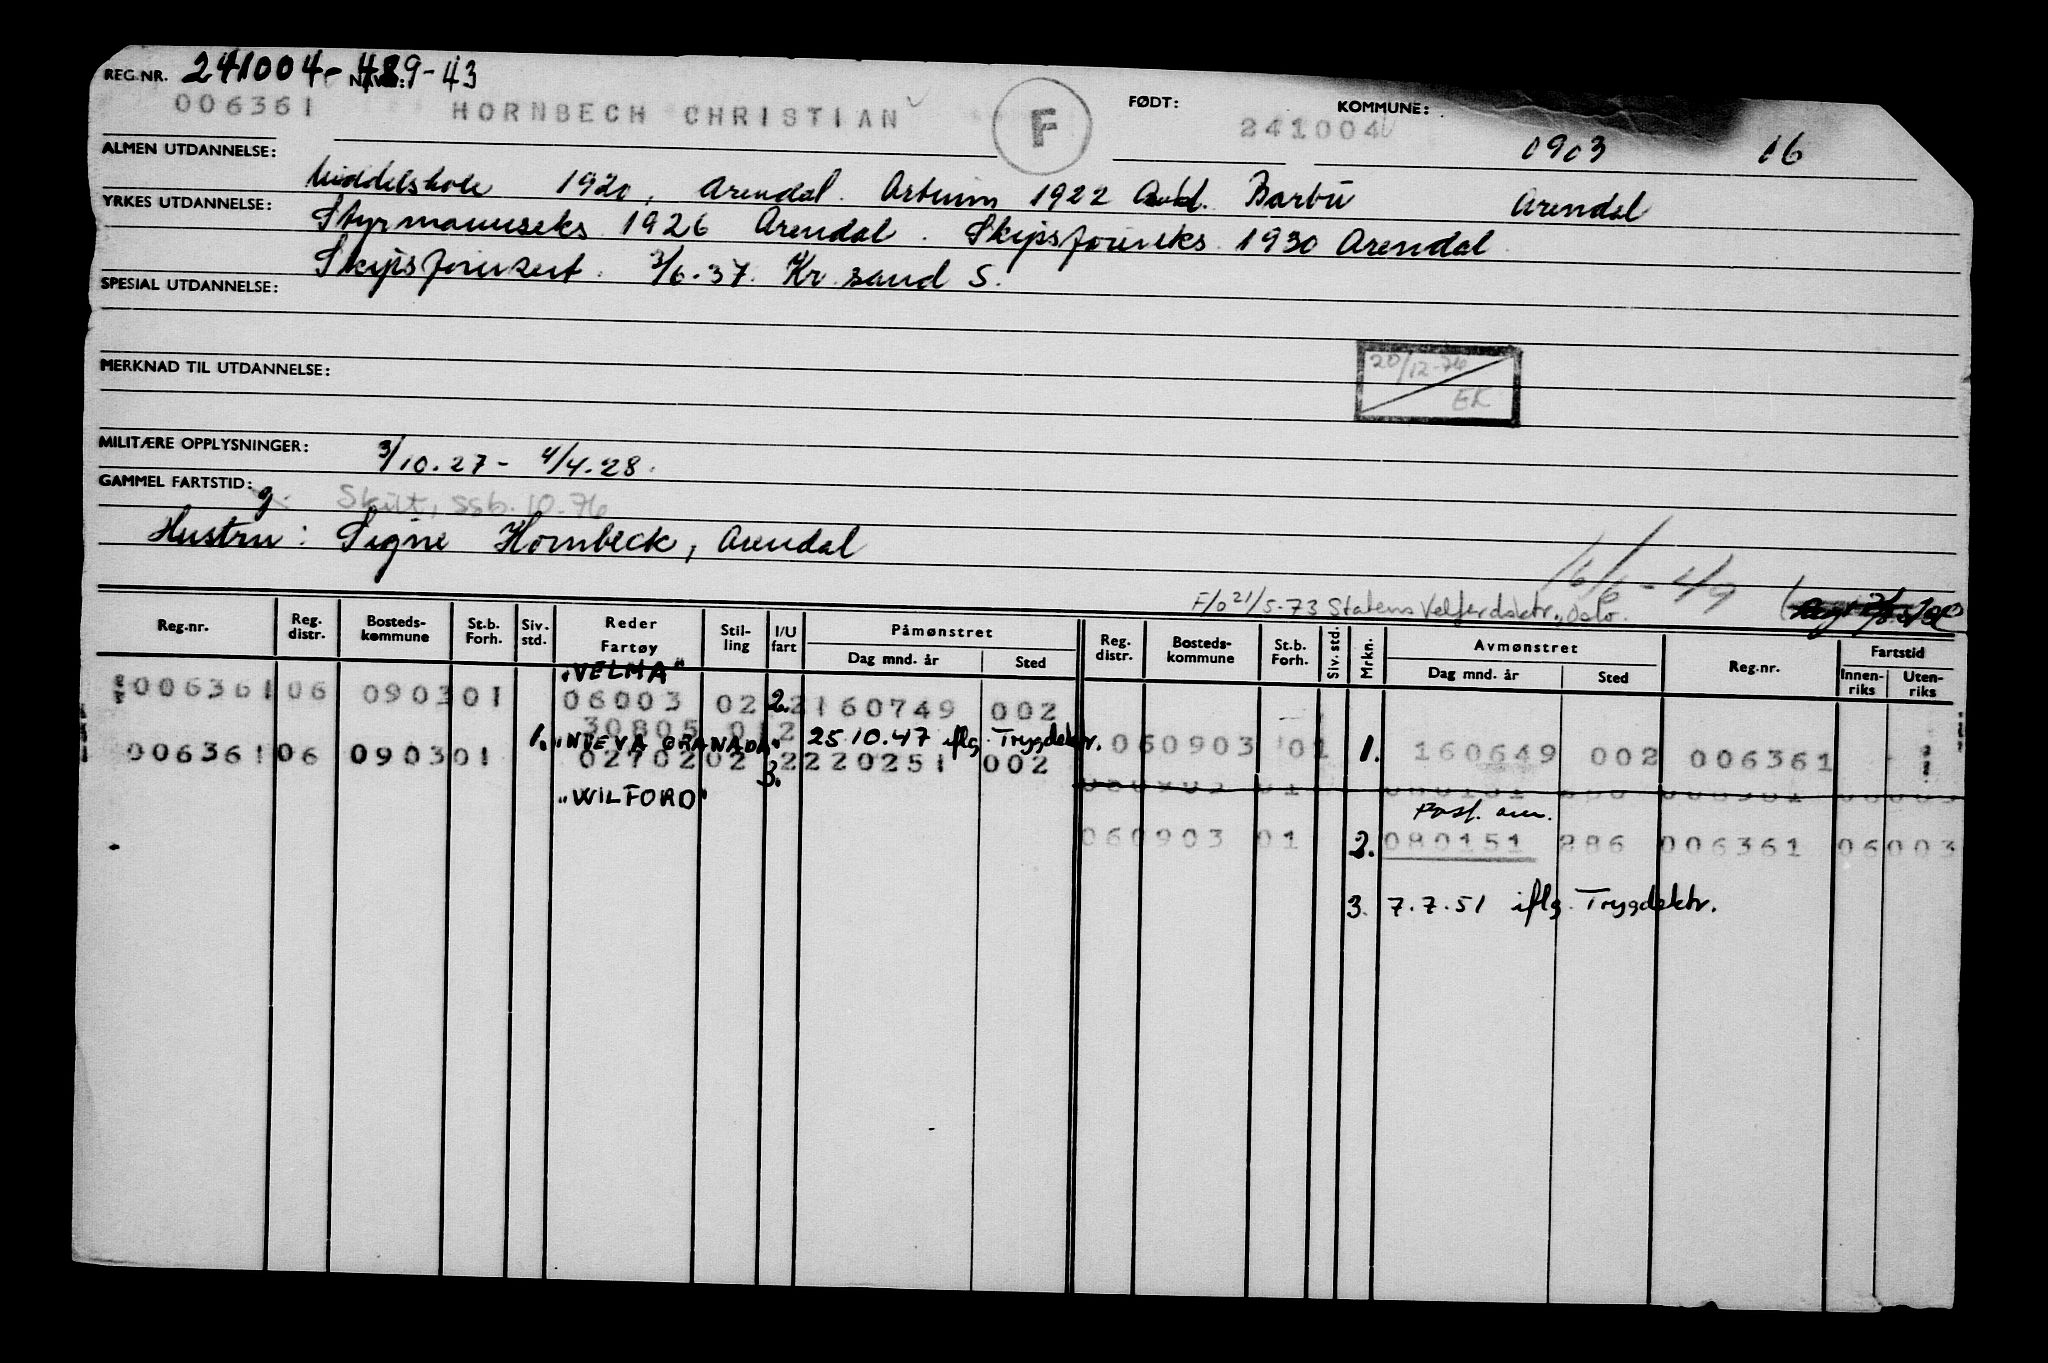 REG.NR. 241004-489-43 NAVN:
006361 HORNBECH CHRISTIAN F FØDT: 241004 KOMMUNE: 0903 06
ALMEN UTDANNELSE: Middelskole 1920, Arendal. Artium 1922 Barbu Arendal
YRKES UTDANNELSE: Styrmannseks 1926 Arendal. Skipsførereks 1930 Arendal
Skipsførersert. 3/6.37. Kr.sand S.
SPESIAL UTDANNELSE:
MERKNAD TIL UTDANNELSE:
20/12-76
EK
MILITÆRE OPPLYSNINGER: 3/10.27 - 4/4.28.
GAMMEL FARTSTID: Skilt, ssb. 10.76
Hustru: Signe Hornbeck, Arendal
16/6-49
F/o 21/5-73 Statens Velferdsktr., Oslo.
Reg.nr. Reg. distr. Bosteds-kommune St.b. Forh. Siv. std. Reder Fartøy Stil-ling I/U fart Påmønstret Dag mnd. år Sted Reg. distr. Bosteds-kommune St.b. Forh. Siv. std. Mrkn. Avmønstret Dag mnd. år Sted Reg.nr. Fartstid Innen-riks Uten-riks
"VELMA"
006361 06 0903 01 06003 02 2. 2 160749 002
30805 01 2
1. "NUEVA GRANADA" 25.10.47 iflg. Trygdektr. 060903 01 1. 160649 002 006361
006361 06 0903 01 02702 02 3. 2 220251 002
"WILFORD"
Pass. avm.
060903 01 2. 080151 886 006361 06003
3. 7.7.51 iflg. Trygdektr.